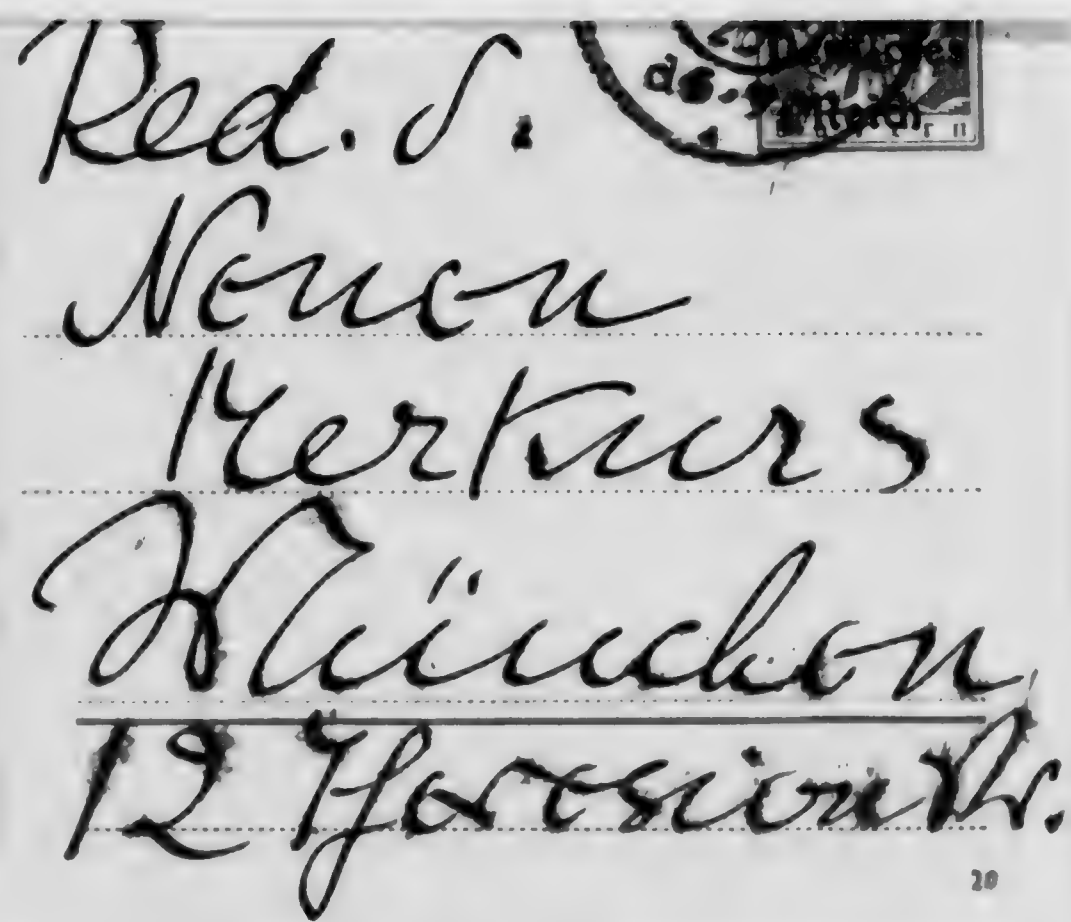 Red. d.
Neuen
Merkurs
München
12 Theresienstr.
20